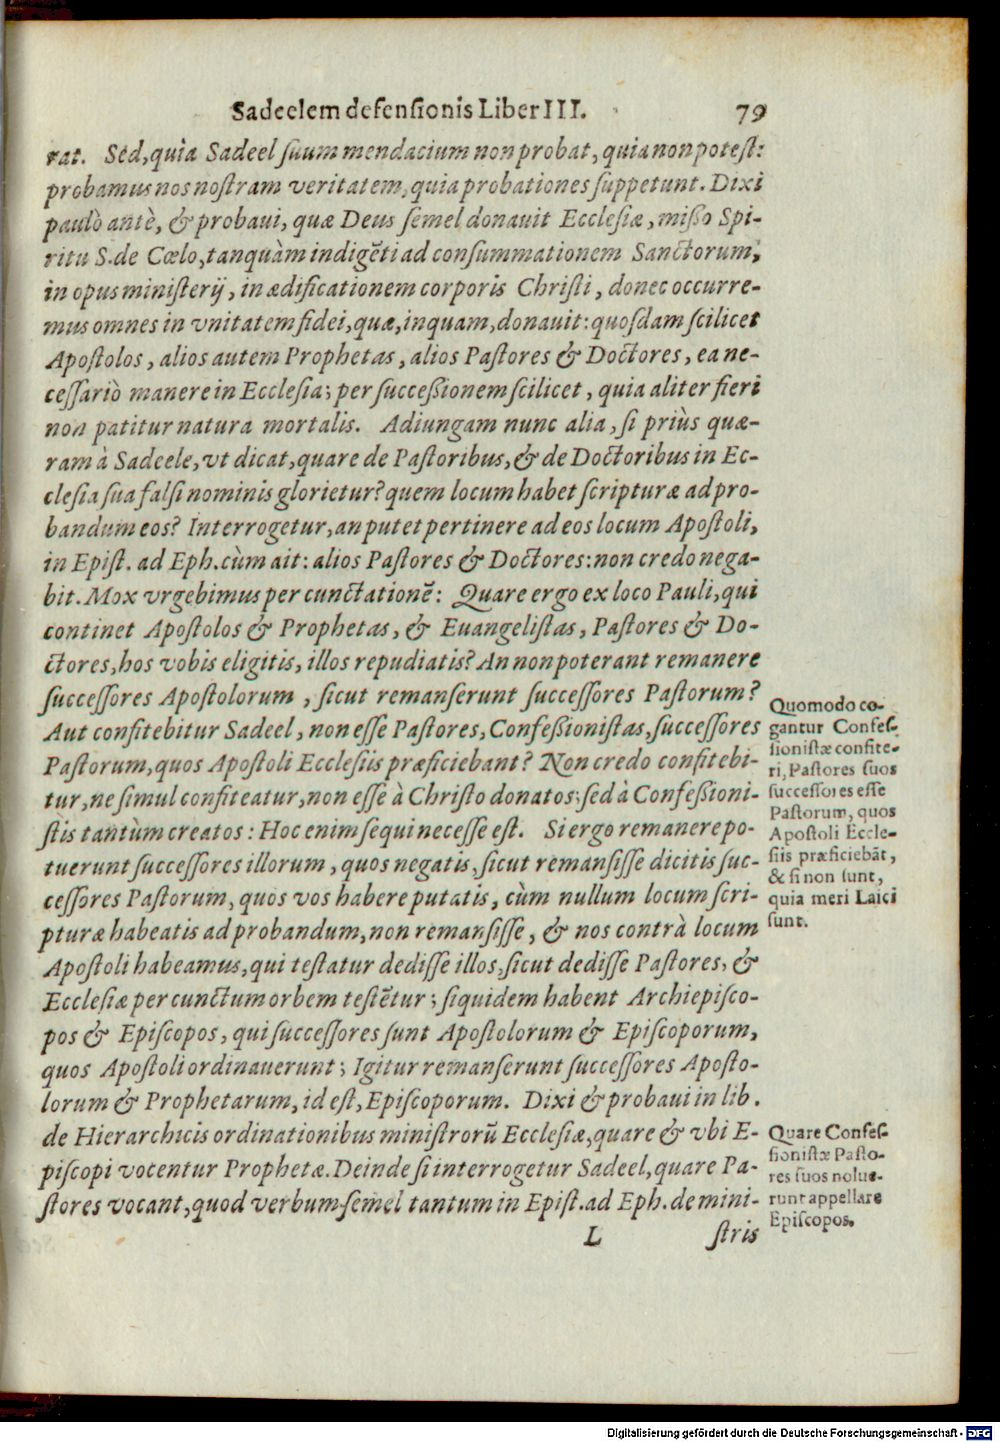 Sadeelem defensionis Liber III. 79
rat. Sed, quia Sadeel suum mendacium non probat, quia non potest:
probamus nos nostram veritatem, quia probationes suppetunt. Dixi
paulò antè, & probaui, quæ Deus semel donauit Ecclesiæ, misso Spi-
ritu S. de Cœlo, tanquàm indigẽti ad consummationem Sanctorum,
in opus ministerij, in ædificationem corporis Christi, donec occurre-
mus omnes in vnitatem fidei, quæ, inquam, donauit: quosdam scilicet
Apostolos, alios autem Prophetas, alios Pastores & Doctores, ea ne-
cessariò manere in Ecclesia; per successionem scilicet, quia aliter fieri
non patitur natura mortalis. Adiungam nunc alia, si priùs quæ-
ram à Sadeele, vt dicat, quare de Pastoribus, & de Doctoribus in Ec-
clesia sua falsi nominis glorietur? quem locum habet scripturæ ad pro-
bandum eos? Interrogetur, an putet pertinere ad eos locum Apostoli,
in Epist. ad Eph. cùm ait: alios Pastores & Doctores: non credo nega-
bit. Mox vrgebimus per cunctationẽ: Quare ergo ex loco Pauli, qui
continet Apostolos & Prophetas, & Euangelistas, Pastores & Do-
ctores, hos vobis eligitis, illos repudiatis? An non poterant remanere
successores Apostolorum, sicut remanserunt successores Pastorum?
Aut confitebitur Sadeel, non esse Pastores, Confessionistas, successores
Pastorum, quos Apostoli Ecclesiis præficiebant? Non credo confitebi-
tur, ne simul confiteatur, non esse à Christo donatos; sed à Confessioni-
stis tantùm creatos: Hoc enim sequi necesse est. Si ergo remanere po-
tuerunt successores illorum, quos negatis, sicut remansisse dicitis suc-
cessores Pastorum, quos vos habere putatis, cùm nullum locum scri-
pturæ habeatis ad probandum, non remansisse, & nos contrà locum
Apostoli habeamus, qui testatur dedisse illos, sicut dedisse Pastores, &
Ecclesiæ per cunctum orbem testẽtur; siquidem habent Archiepisco-
pos & Episcopos, qui successores sunt Apostolorum & Episcoporum,
quos Apostoli ordinauerunt; Igitur remanserunt successores Aposto-
lorum & Prophetarum, id est, Episcoporum. Dixi & probaui in lib.
de Hierarchicis ordinationibus ministrorũ Ecclesiæ, quare & vbi E-
piscopi vocentur Prophetæ. Deinde si interrogetur Sadeel, quare Pa-
stores vocant, quod verbum semel tantum in Epist. ad Eph. de mini-
L stris
Quomodo co-
gantur Confes-
sionistæ confite-
ri, Pastores suos
successores esse
Pastorum, quos
Apostoli Eccle-
siis præficiebãt,
& si non sunt,
quia meri Laici
sunt.
Quare Confes-
sionistæ Pasto-
res suos nolue-
runt appellare
Episcopos.
Digitalisierung gefördert durch die Deutsche Forschungsgemeinschaft - DFG